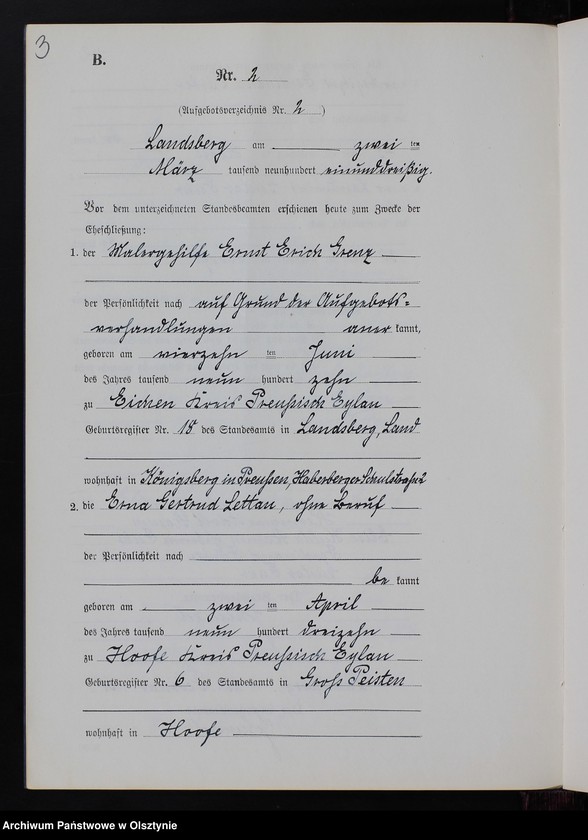 3
B.
Nr. 2
(Aufgebotsverzeichnis Nr. 2 )
Landsberg am zwei ten
März tausend neunhundert einunddreißig.
Vor dem unterzeichneten Standesbeamten erschienen heute zum Zwecke der
Eheschließung:
1. der Malergehilfe Ernst Erich Grenz
der Persönlichkeit nach auf Grund der Aufgebots=
verhandlungen aner kannt,
geboren am vierzehn ten Juni
des Jahres tausend neun hundert zehn
zu Eichen Kreis Preußisch Eylau
Geburtsregister Nr. 18 des Standesamts in Landsberg, Land
wohnhaft in Königsberg in Preußen, Haberberger Schulstraße 2
2. die Erna Gertrud Lettau, ohne Beruf
der Persönlichkeit nach
be kannt
geboren am zwei ten April
des Jahres tausend neun hundert dreizehn
zu Hoofe Kreis Preußisch Eylau
Geburtsregister Nr. 6 des Standesamts in Groß Peisten
wohnhaft in Hoofe
Archiwum Państwowe w Olsztynie